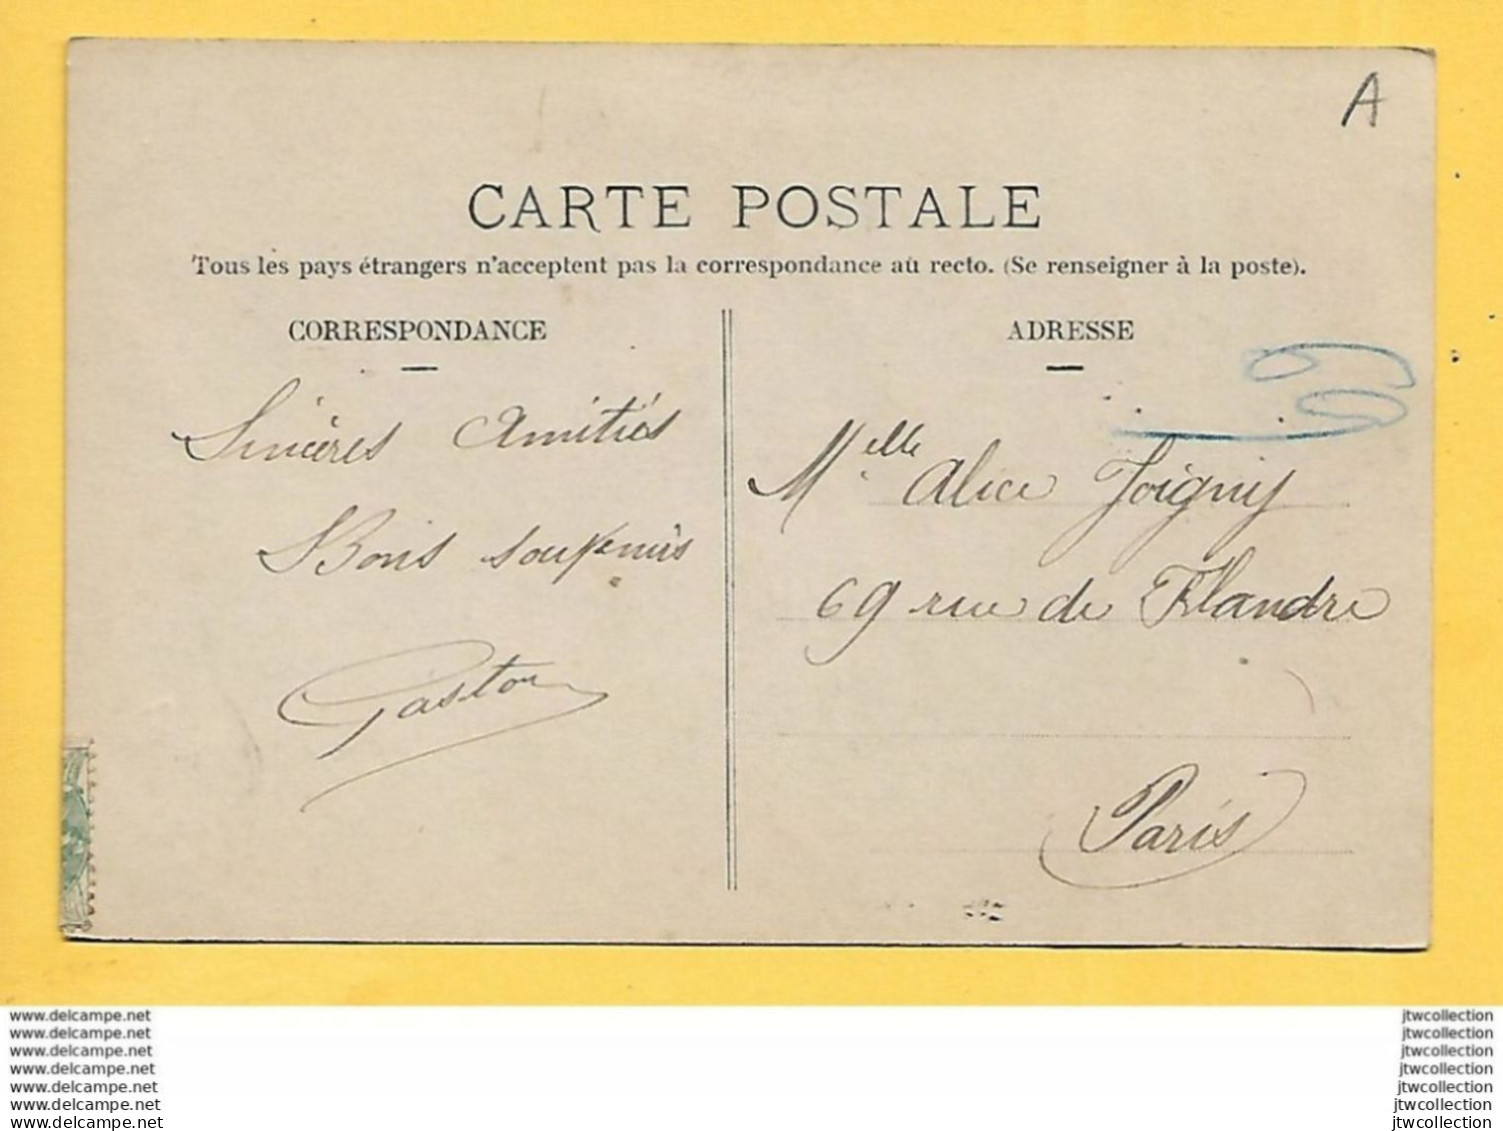 A
CARTE POSTALE
Tous les pays étrangers n'acceptent pas la correspondance au recto. (Se renseigner à la poste).
CORRESPONDANCE
Sincères Amitiés
Bons souvenirs
Gaston
ADRESSE
Melle Alice Joigny
69 rue de Flandre
Paris
www.delcampe.net
www.delcampe.net
www.delcampe.net
www.delcampe.net
www.delcampe.net
www.delcampe.net
www.delcampe.net
jtwcollection
jtwcollection
jtwcollection
jtwcollection
jtwcollection
jtwcollection
jtwcollection